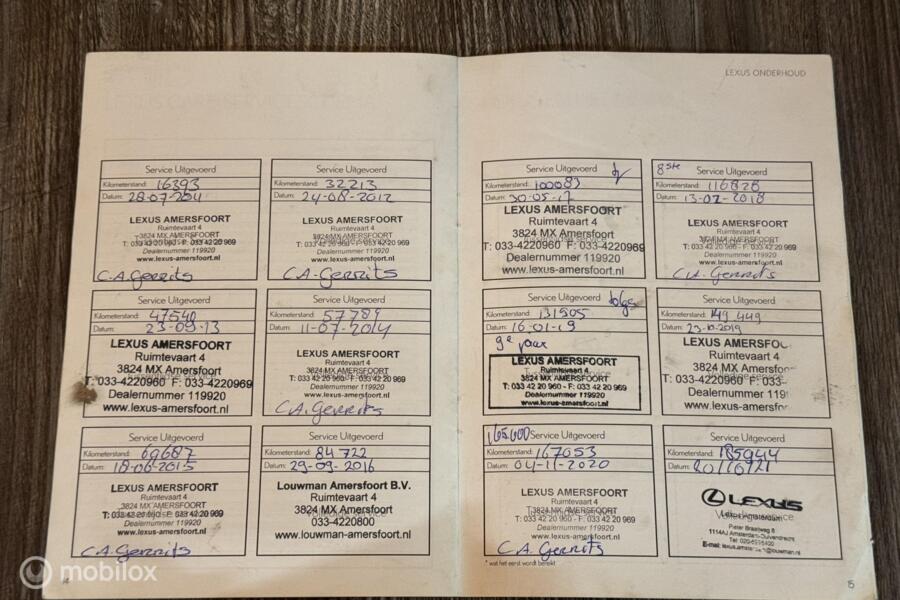 LEXUS ONDERHOUD
Service Uitgevoerd
Kilometerstand: 16393
Datum: 28-07-2011
LEXUS AMERSFOORT
Ruimtevaart 4
3824 MX AMERSFOORT
T: 033 42 20 960 - F: 033 42 20 969
Dealernummer 119920
www.lexus-amersfoort.nl
C.A. Gerrits
Service Uitgevoerd
Kilometerstand: 32213
Datum: 24-08-2012
LEXUS AMERSFOORT
Ruimtevaart 4
3824 MX AMERSFOORT
T: 033 42 20 960 - F: 033 42 20 969
Dealernummer 119920
www.lexus-amersfoort.nl
C.A. Gerrits
Service Uitgevoerd
Kilometerstand: 47540
Datum: 23-09-13
LEXUS AMERSFOORT
Ruimtevaart 4
3824 MX Amersfoort
T: 033-4220960 F: 033-4220969
Dealernummer 119920
www.lexus-amersfoort.nl
Service Uitgevoerd
Kilometerstand: 57789
Datum: 11-07-2014
LEXUS AMERSFOORT
Ruimtevaart 4
3824 MX AMERSFOORT
T: 033 42 20 960 - F: 033 42 20 969
Dealernummer 119920
www.lexus-amersfoort.nl
C.A. Gerrits
Service Uitgevoerd
Kilometerstand: 69687
Datum: 18-06-2015
LEXUS AMERSFOORT
Ruimtevaart 4
3824 MX AMERSFOORT
T: 033 42 20 960 - F: 033 42 20 969
Dealernummer 119920
www.lexus-amersfoort.nl
C.A. Gerrits
Service Uitgevoerd
Kilometerstand: 84722
Datum: 29-09-2016
Louwman Amersfoort B.V.
Ruimtevaart 4
3824 MX Amersfoort
033-4220800
www.louwman-amersfoort.nl
Service Uitgevoerd
Kilometerstand: 100083
Datum: 30-05-17
LEXUS AMERSFOORT
Ruimtevaart 4
3824 MX Amersfoort
T: 033-4220960 F: 033-4220969
Dealernummer 119920
www.lexus-amersfoort.nl
8ste Service Uitgevoerd
Kilometerstand: 116828
Datum: 13-02-2018
LEXUS AMERSFOORT
Ruimtevaart 4
3824 MX AMERSFOORT
T: 033 42 20 960 - F: 033 42 20 969
Dealernummer 119920
www.lexus-amersfoort.nl
C.A. Gerrits
Service Uitgevoerd
Kilometerstand: 131505
Datum: 16-01-19
9e
LEXUS AMERSFOORT
Ruimtevaart 4
3824 MX AMERSFOORT
T: 033 42 20 960 - F: 033 42 20 969
Dealernummer 119920
www.lexus-amersfoort.nl
Service Uitgevoerd
Kilometerstand: 149449
Datum: 23-10-2019
LEXUS AMERSFO
Ruimtevaart 4
3824 MX Amersfoort
T: 033-4220960 F: 033-422
Dealernummer 119
www.lexus-amersfoo
165000 Service Uitgevoerd
Kilometerstand: 167053
Datum: 04-11-2020
LEXUS AMERSFOORT
Ruimtevaart 4
3824 MX AMERSFOORT
T: 033 42 20 960 - F: 033 42 20 969
Dealernummer 119920
www.lexus-amersfoort.nl
C.A. Gerrits
* wat het eerst wordt bereikt
Service Uitgevoerd
Kilometerstand: 185944
Datum: 20/10/21
LEXUS
Pieter Braaijweg 8
1114AJ Amsterdam-Duivendrecht
14
15
mobilox